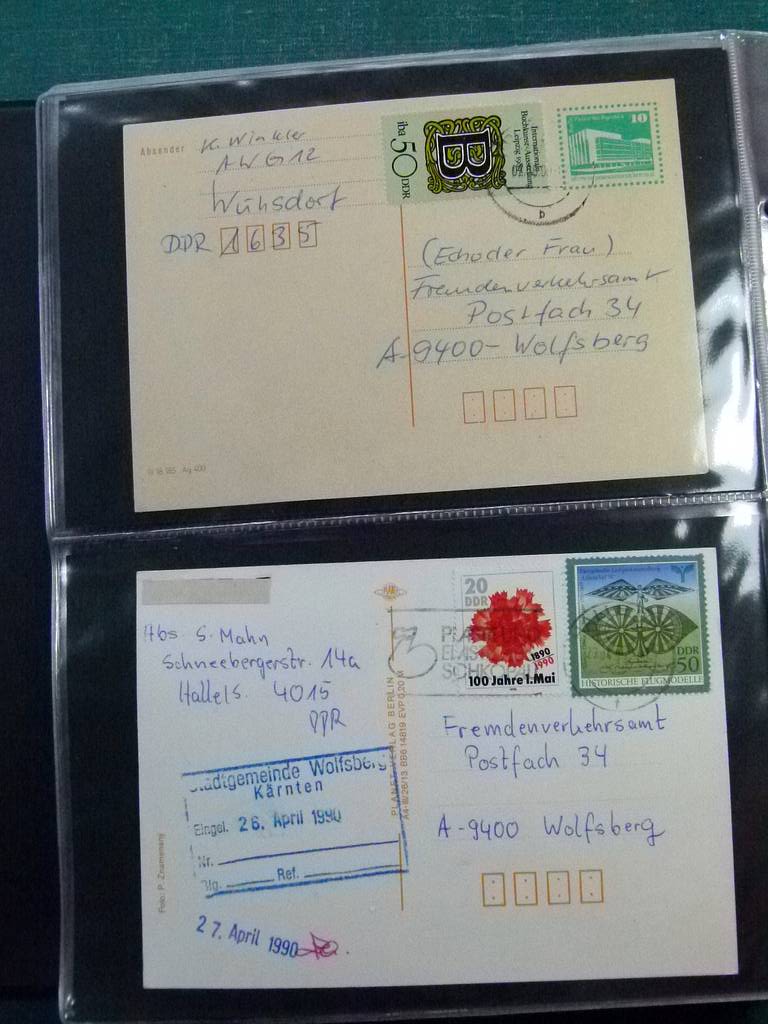 Absender
K. Winkler
AWG 12
Wünsdorf
DDR 1635
iba 50 DDR
Internationale
Buchkunst-Ausstellung
10
(Echo der Frau)
Fremdenverkehrsamt
Postfach 34
A-9400- Wolfsberg
Ag 400
Abs S. Mahn
Schneebergerstr. 14a
Halle/S. 4015
DDR
20
DDR
1890
1990
100 Jahre 1. Mai
DDR
50
HISTORISCHE FLUGMODELLE
PLANET-VERLAG BERLIN
Fremdenverkehrsamt
Postfach 34
A-9400 Wolfsberg
Stadtgemeinde Wolfsberg
Kärnten
Eingel. 26. April 1990
Nr.
Blg. Ref.
27. April 1990
Foto: P. Znamenany